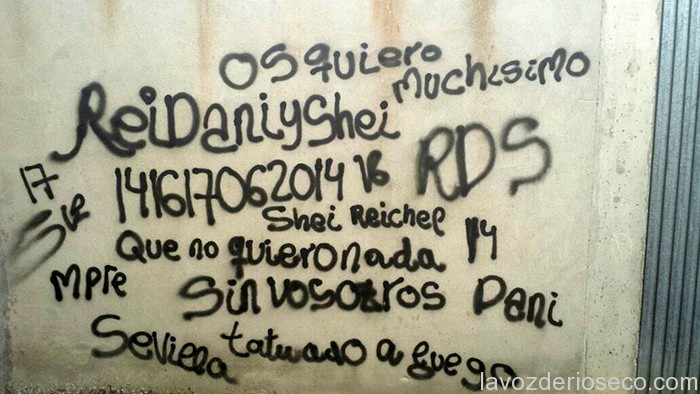 Os quiero
muchisimo
ReiDaniyShei
RDS
17
141617062014 16
Shei Reichel
14
Sie
mpre
Que no quiero nada
Sin vosotros Dani
Sevilla tatuado a fuego
lavozderioseco.com